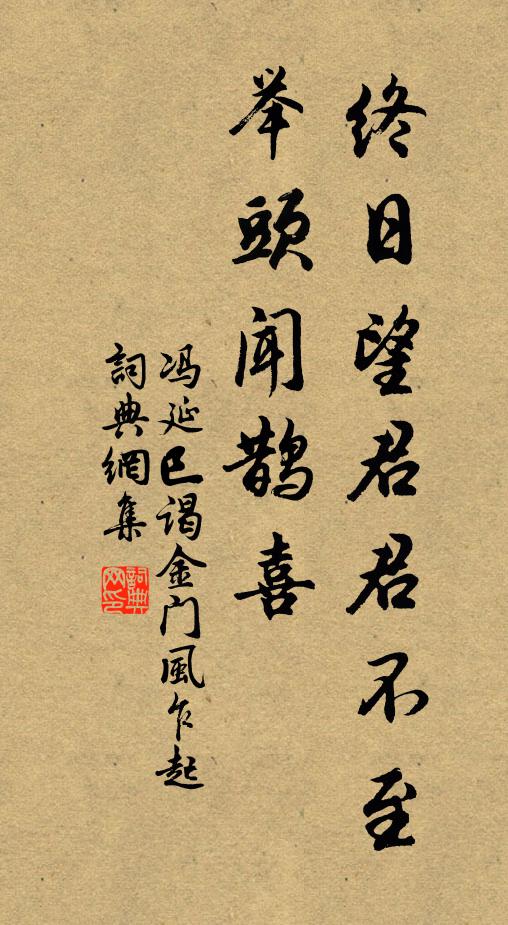 终日望君君不至
举頭闻鹊喜
冯延巳谒金门風乍起
詞典網集
詞典网印